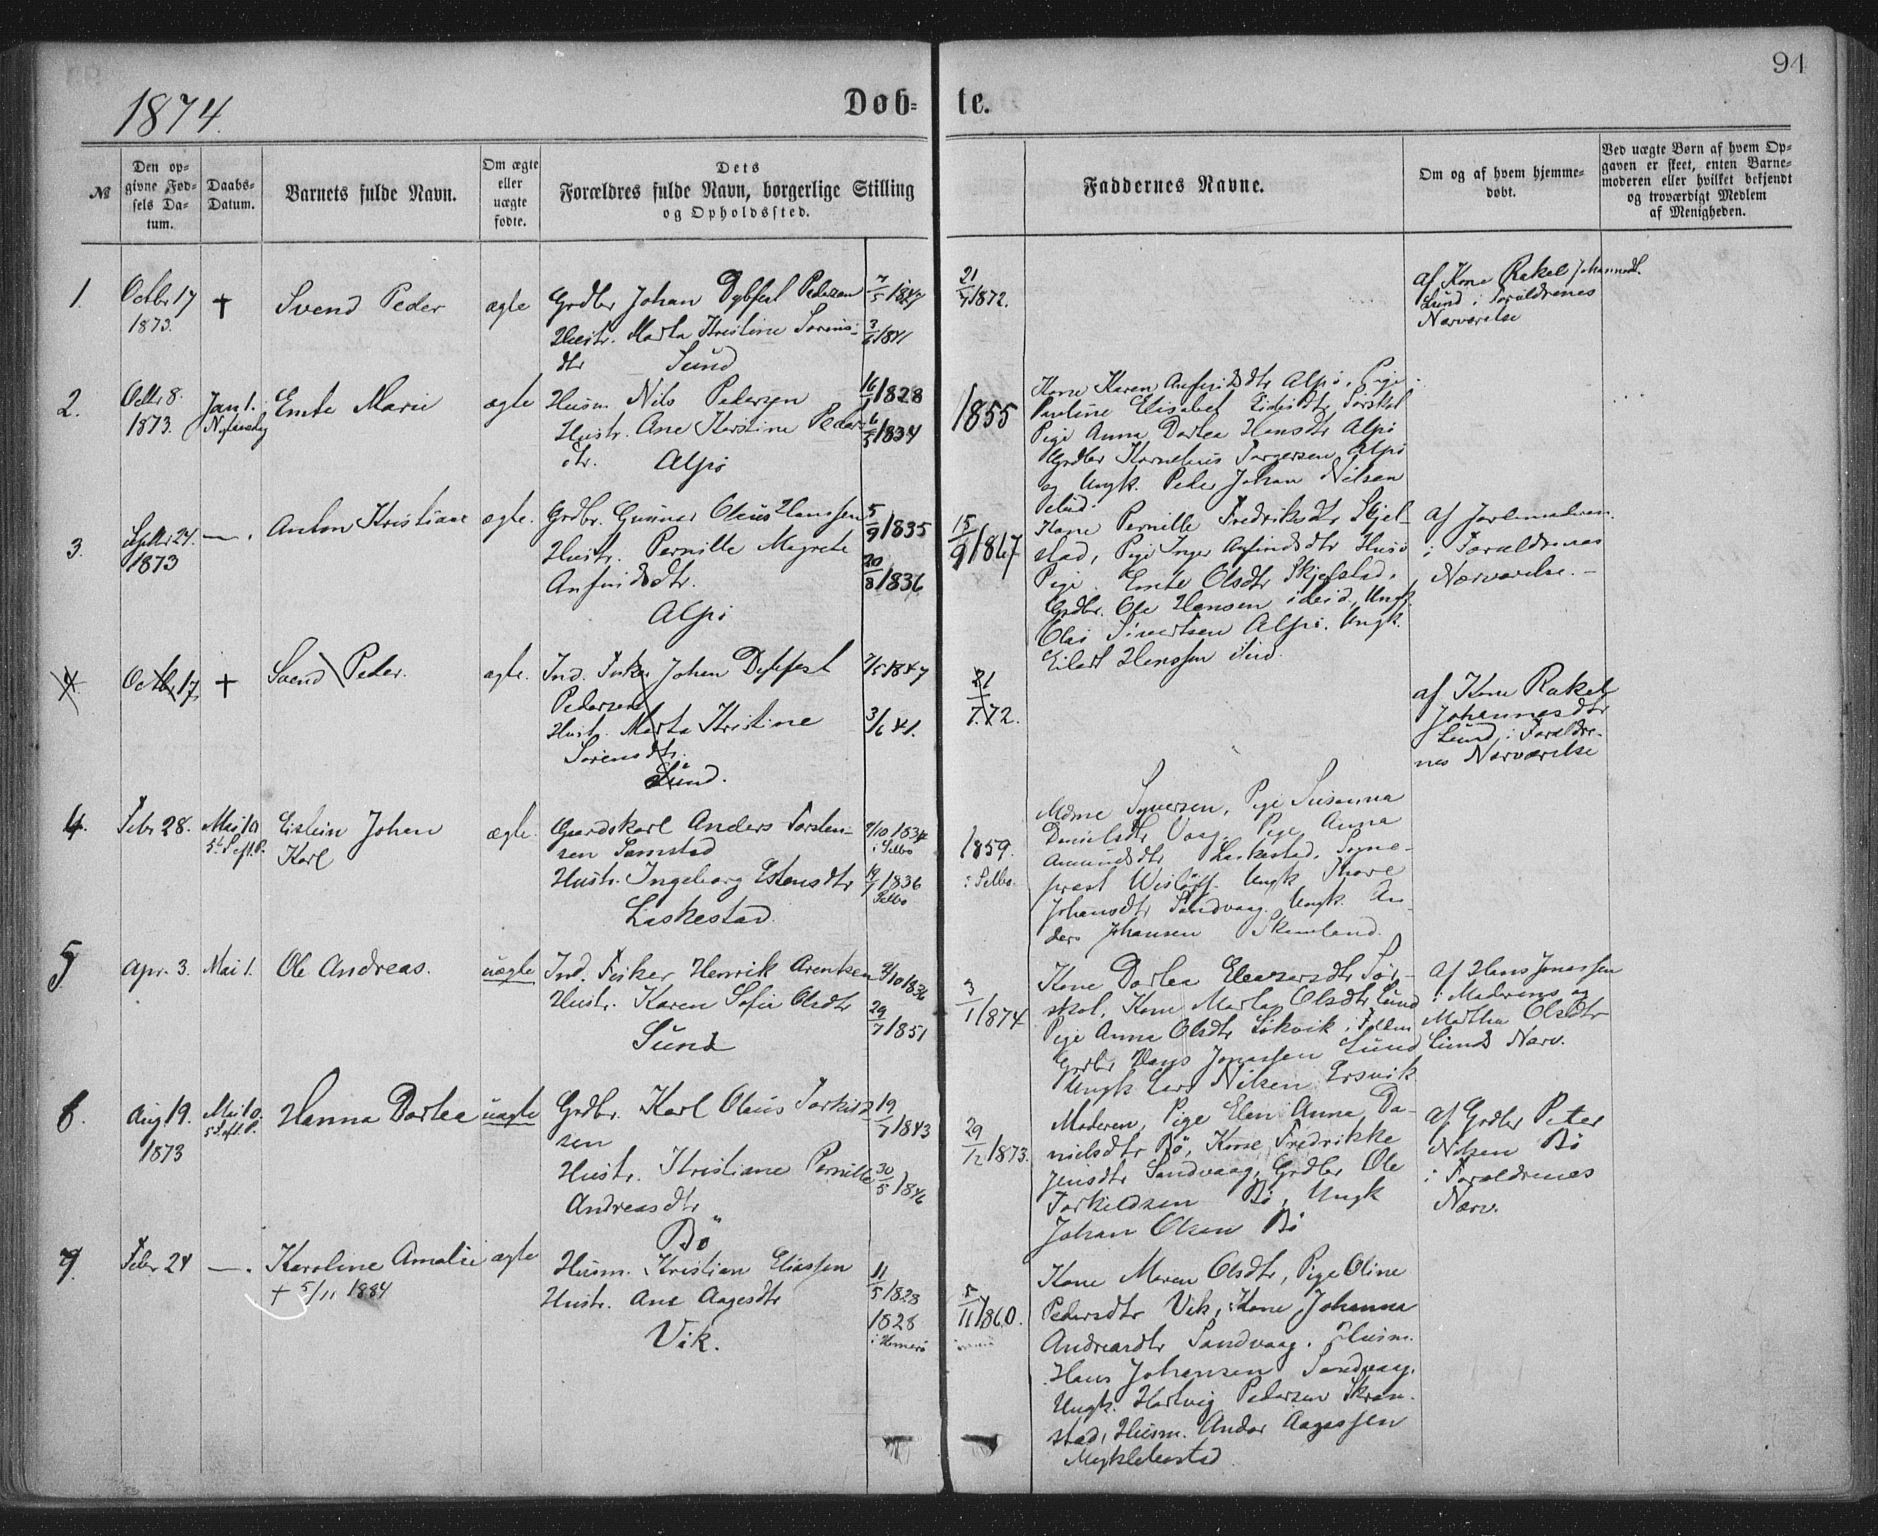 94
1874.
Döb- te.
№
Den op-
givne Fød-
sels Da-
tum.
Daabs-
Datum.
Barnets fulde Navn.
Om ægte
eller
uægte
fødte.
Dets
Forældres fulde Navn, borgerlige Stilling
og Opholdssted.
Faddernes Navne.
Om og af hvem hjemme-
døbt.
Ved uægte Børn af hvem Op-
gaven er skeet, enten Barne-
moderen eller hvilket bekjendt
og troværdigt Medlem
af Menigheden.
1.
Octbr 17
1873.
†
Svend Peder
ægte
Grdbr Johan Dybfest Pedersen
Hustr. Marta Kristine Sørens-
dtr Sund
7/5 1847
3/6 1841
21/7 1872.
af Kone Rakel Johannesdt.
Lund i Foraldrenes
Nærværelse
2.
Octbr 8.
1873.
Jan 1.
Nytaarsdag
Emte Marie
ægte
Husm. Nils Pedersen
Hustr. Ane Kirstine Peders-
dtr. Alpö
16/1 1828
6/5 1834
1855
Kone Karen Anfindsdtr Alpö, Pige
Pauline Elisabet
Pige Anna Dortea Hansdtr Alpö
Grdbr Kornelius Torgersen Alpö
og Ungk. Peder Johan Nilsen
3.
Septbr 24.
1873
—.
Anton Kristian
ægte.
Grdbr. Gunnar Olaus Hanssen
Hustr. Pernille Megrete
Anfindsdtr.
Alpö
5/9 1835
20/8 1836
15/9 1867
Kone Pernille Fredriksdtr Skjel-
stad, Pige Inger Anfindsdtr Husö
Pige Emte Olsdtr Skjelstad,
Grdbr. Ole Hansen ideid, Ungk.
Olai Sivertsen Alpö. Ungk.
Eilert Hanssen
af Jordemodren
i Foraldrenes
Nærværelse. –
4
Octbr 17,
†
Svend Peder.
ægte.
Ind. Fisker Johan Dybfest
Pedersen
Hust. Marta Kristine
Sørensdtr.
Sund.
7/5 1847
3/6 41.
21/7.72.
af Kone Rakel
Johannesdtr
Lund i Foraldre-
nes Nærværelse
4.
Febr 28.
Mai 10
5te S. eft. P.
Eistein Johan
Karl
ægte.
Gaardskarl Anders Torsten-
sen Samstad
Hustr. Ingeborg Estensdtr
Laskestad
9/10 1834
i Selbo
19/7 1836
Selbo
1859.
i Selbo.
Mdme Syversen, Pige Susanna
Danielsdtr Vaag, Pige Anna
Amundsdtr Laskestad, Sogne-
præst Wislöff. Ungk Thore
Johansdtr Sandvaag. Ungk. An-
ders Johansen
5
Apr. 3.
Mai 1.
Ole Andreas.
uægte
Ind. Fisker Henrik Arentsen
Hustr. Karen Sofie Olsdtr
Sund
9/10 1836
29/7 1851
3/1 1874
Kone Dortea Eleasersdtr Sör-
skot, Kone Marta Olsdtr Lund
Pige Anna Olsdtr Løkvik i Folden
Grdbr Hans Jonassen Lund
Ungk Lars Nilsen Ersvik
af Hans Jonassen
i Moderens og
Martha Olsdtr
Lunds Nærv.
6.
Aug 19.
1873
Mai 10.
5 S. eft. P.
Hanna Dortea
uægte
Grdbr. Karl Olaus Torkild-
sen
Hustr. Kristiane Pernille
Andreasdtr
Bö
19/7 1843
30/5 1846
29/12 1873.
Moderen, Pige Elen Anna Da-
nielsdtr Bö, Kone Fredrikke
Jensdtr Sandvaag, Grdbr Ole
Torkildsen Bö, Ungk
Johan Olsen Bö
af Grdbr Peter
Nilsen Bö
i Foraldrenes
Nærv.
7.
Febr 24
—.
Karoline Amalie
† 5/11 1884
ægte
Husm. Kristian Eliassen
Hustr. Ane Aagesdtr
Vik.
11/5 1828
1828
i Hamerö
5/11 1860.
Kone Maren Olsdtr, Pige Oline
Pedersdtr Vik, Kone Johanna
Andreasdtr Sandvaag. Husm.
Hans Johansen Sandvaag.
Ungk. Hartvig Pedersen Skran-
stad, Husm. Andor Aagessen
Myklebostad